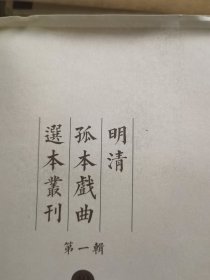 明清
孤本戲曲
選本叢刊
第一輯